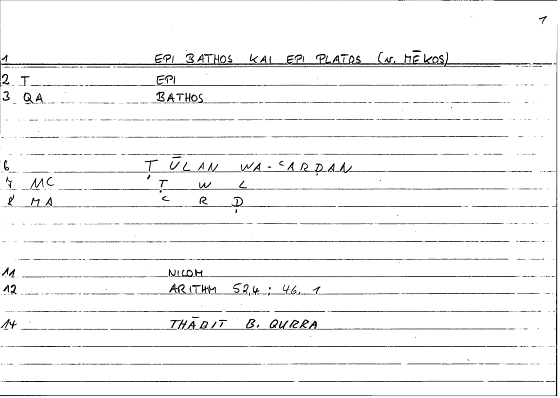 1
1 EPI BATHOS KAI EPI PLATOS (w. MĒKOS)
2 T EPI
3 QA BATHOS
6 ṬŪLAN WA-ᶜARḌAN
7 MC Ṭ W L
8 MA ᶜ R Ḍ
11 NICOM
12 ARITHM 52,4 ; 46, 1
14 THĀBIT B. QURRA